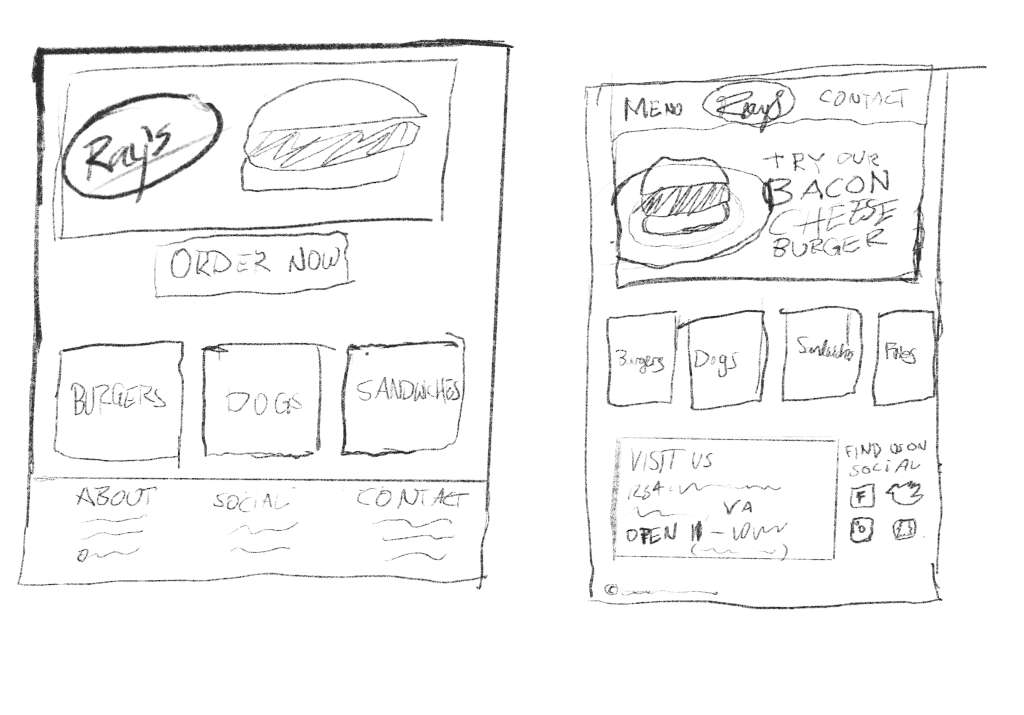 Ray's
ORDER NOW
BURGERS DOGS SANDWICHES
ABOUT SOCIAL CONTACT
MENU Rays CONTACT
TRY OUR
BACON
CHEESE
BURGER
Burgers Dogs Sandwiches Fries
VISIT US
VA
OPEN 11-10
FIND US ON
SOCIAL
F
©